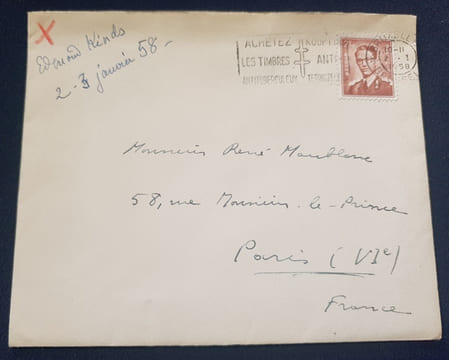 X
Edmond Kinds
2-3 janvier 58-
ACHETEZ
LES TIMBRES
ANTITUBERCULEUX
KOOPT
ANTI
10-11
1958
Monsieur René Maublanc
58, rue Monsieur-le-Prince
Paris (VIe)
France